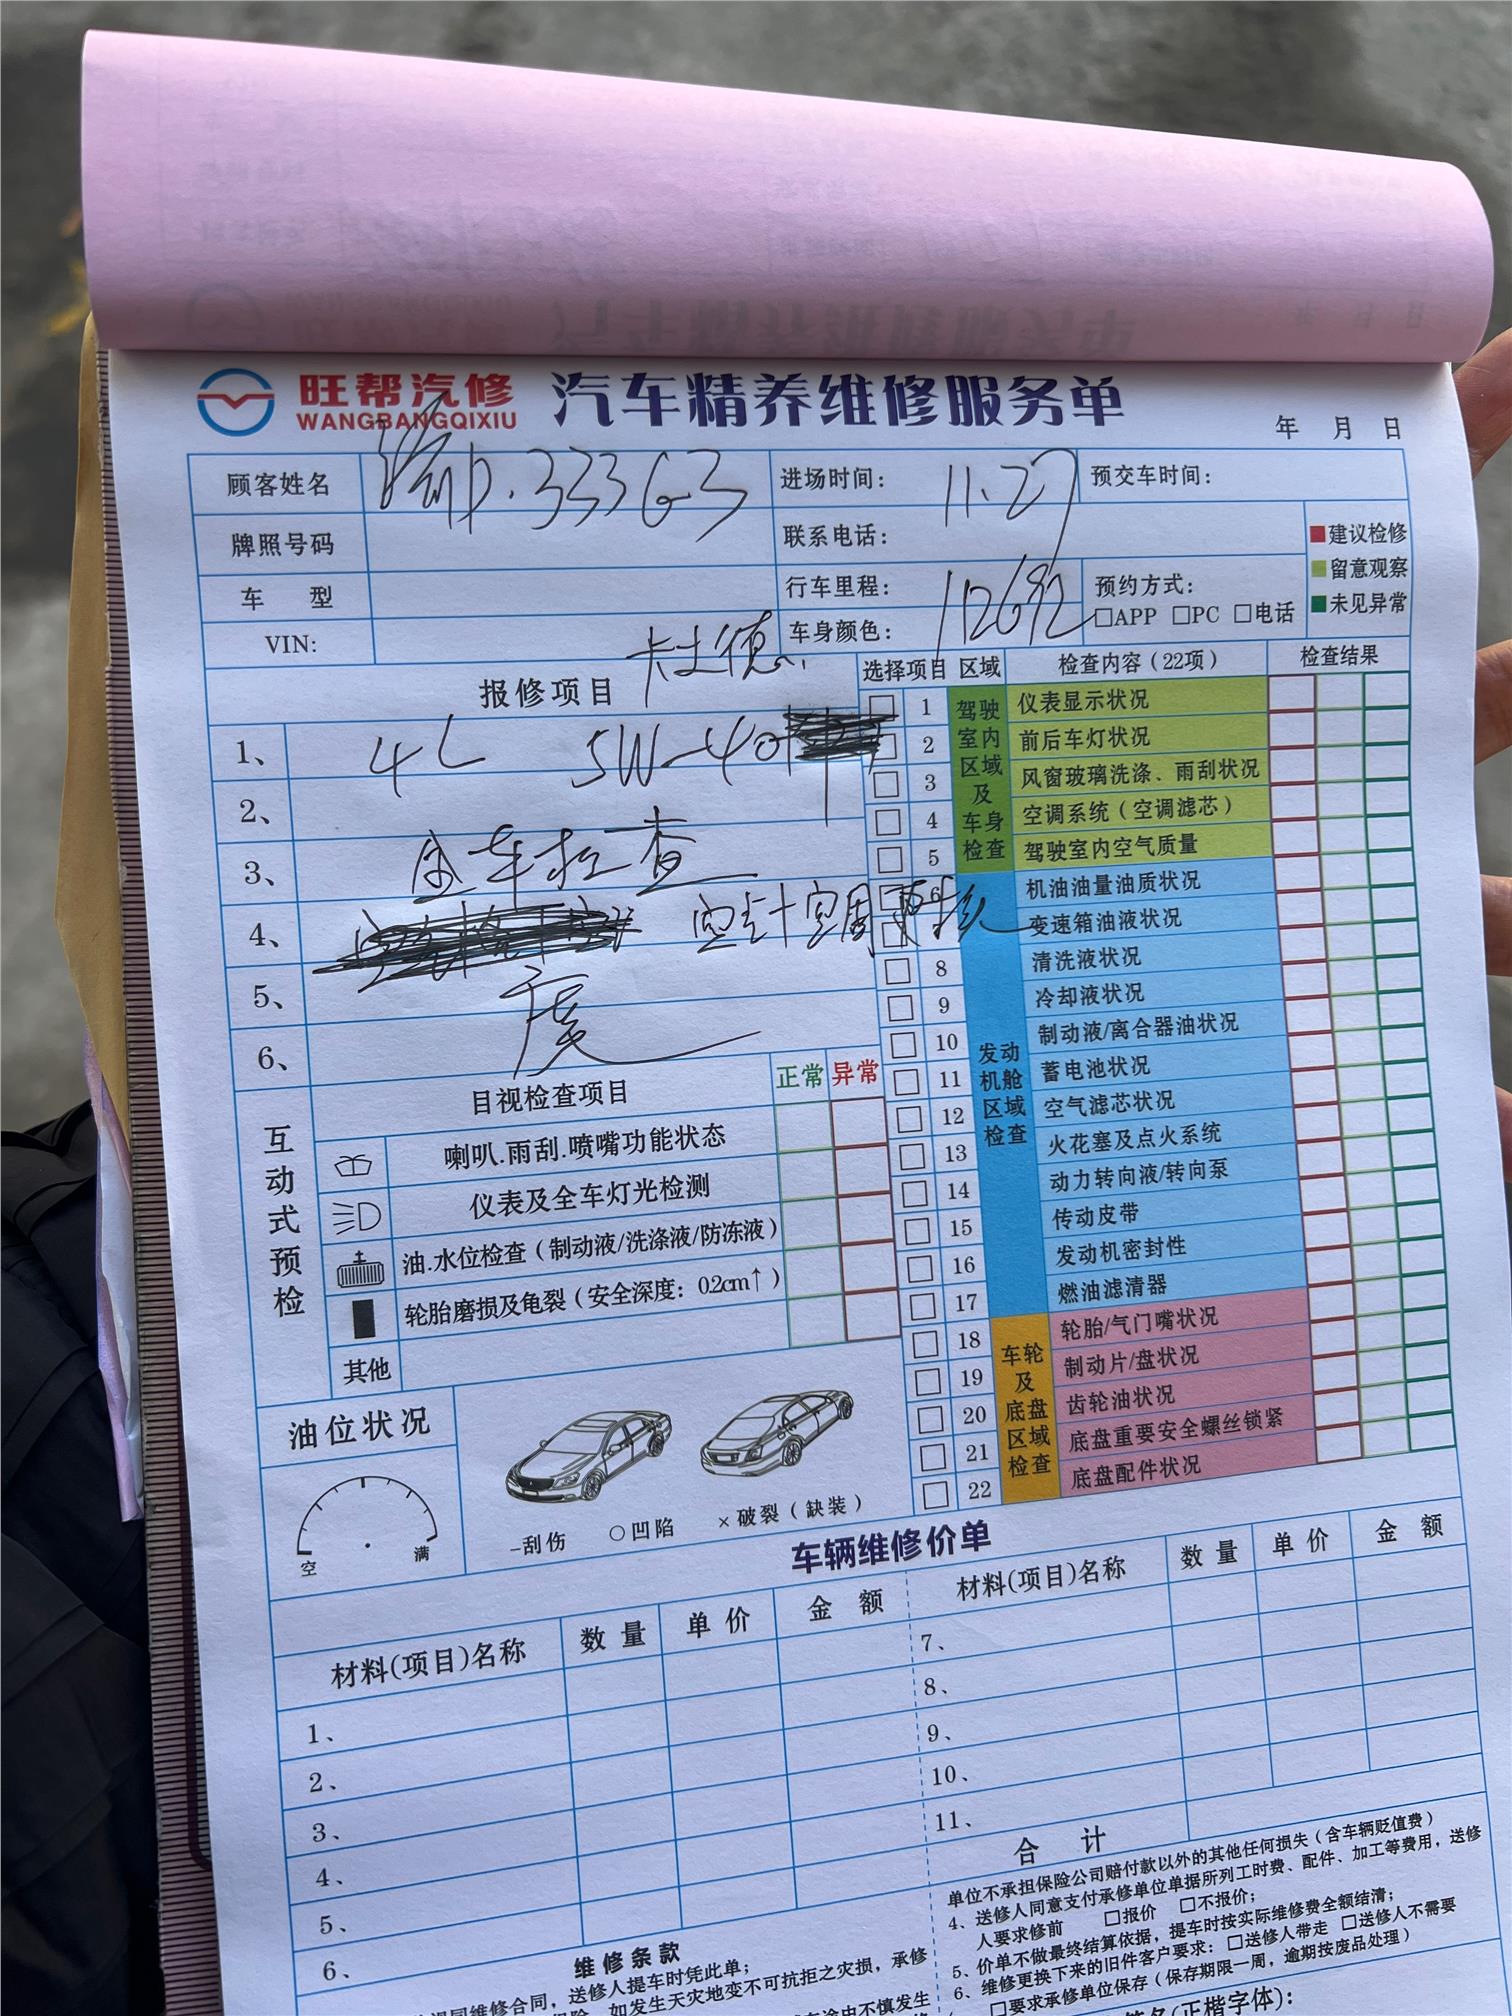 旺帮汽修 汽车精养维修服务单
WANGBANGQIXIU
年 月 日
顾客姓名 渝D·333G3 进场时间: 11.27 预交车时间:
牌照号码 联系电话:
建议检修
留意观察
未见异常
车 型 行车里程: 112692 预约方式:
APP PC 电话
VIN: 车身颜色:
报修项目 卡士德
1、 4L 5W-40
2、
3、 全车检查
4、 空气+空调
5、
6、
选择项目 区域 检查内容(22项) 检查结果
驾驶室内区域及车身检查
1 仪表显示状况
2 前后车灯状况
3 风窗玻璃洗涤、雨刮状况
4 空调系统(空调滤芯)
5 驾驶室内空气质量
发动机舱区域检查
6 机油油量油质状况
变速箱油液状况
8 清洗液状况
9 冷却液状况
10 制动液/离合器油状况
11 蓄电池状况
12 空气滤芯状况
13 火花塞及点火系统
14 动力转向液/转向泵
15 传动皮带
16 发动机密封性
17 燃油滤清器
车轮及底盘区域检查
18 轮胎/气门嘴状况
19 制动片/盘状况
20 齿轮油状况
21 底盘重要安全螺丝锁紧
22 底盘配件状况
互动式预检
目视检查项目 正常 异常
喇叭.雨刮.喷嘴功能状态
仪表及全车灯光检测
油.水位检查(制动液/洗涤液/防冻液)
轮胎磨损及龟裂(安全深度: 0.2cm↑)
其他
油位状况
空 满
-刮伤 ○凹陷 ×破裂(缺装)
车辆维修价单
材料(项目)名称 数量 单价 金额 材料(项目)名称 数量 单价 金额
1、
2、
3、
4、
5、
6、
7、
8、
9、
10、
11、
合 计
维修条款
送修人提车时凭此单;
如发生天灾地变不可抗拒之灾损,承修
单位不承担保险公司赔付款以外的其他任何损失(含车辆贬值费)
4、送修人同意支付承修单位单据所列工时费、配件、加工等费用,送修
人要求修前 □报价 □不报价;
5、价单不做最终结算依据,提车时按实际维修费全额结清;
6、维修更换下来的旧件客户要求:□送修人带走 □送修人不需要
□要求承修单位保存(保存期限一周,逾期按废品处理)
(正楷字体):